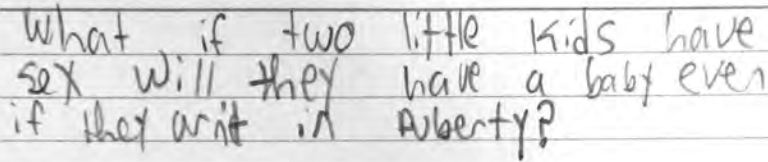 What if two little kids have
sex will they have a baby even
if they arn't in Puberty?